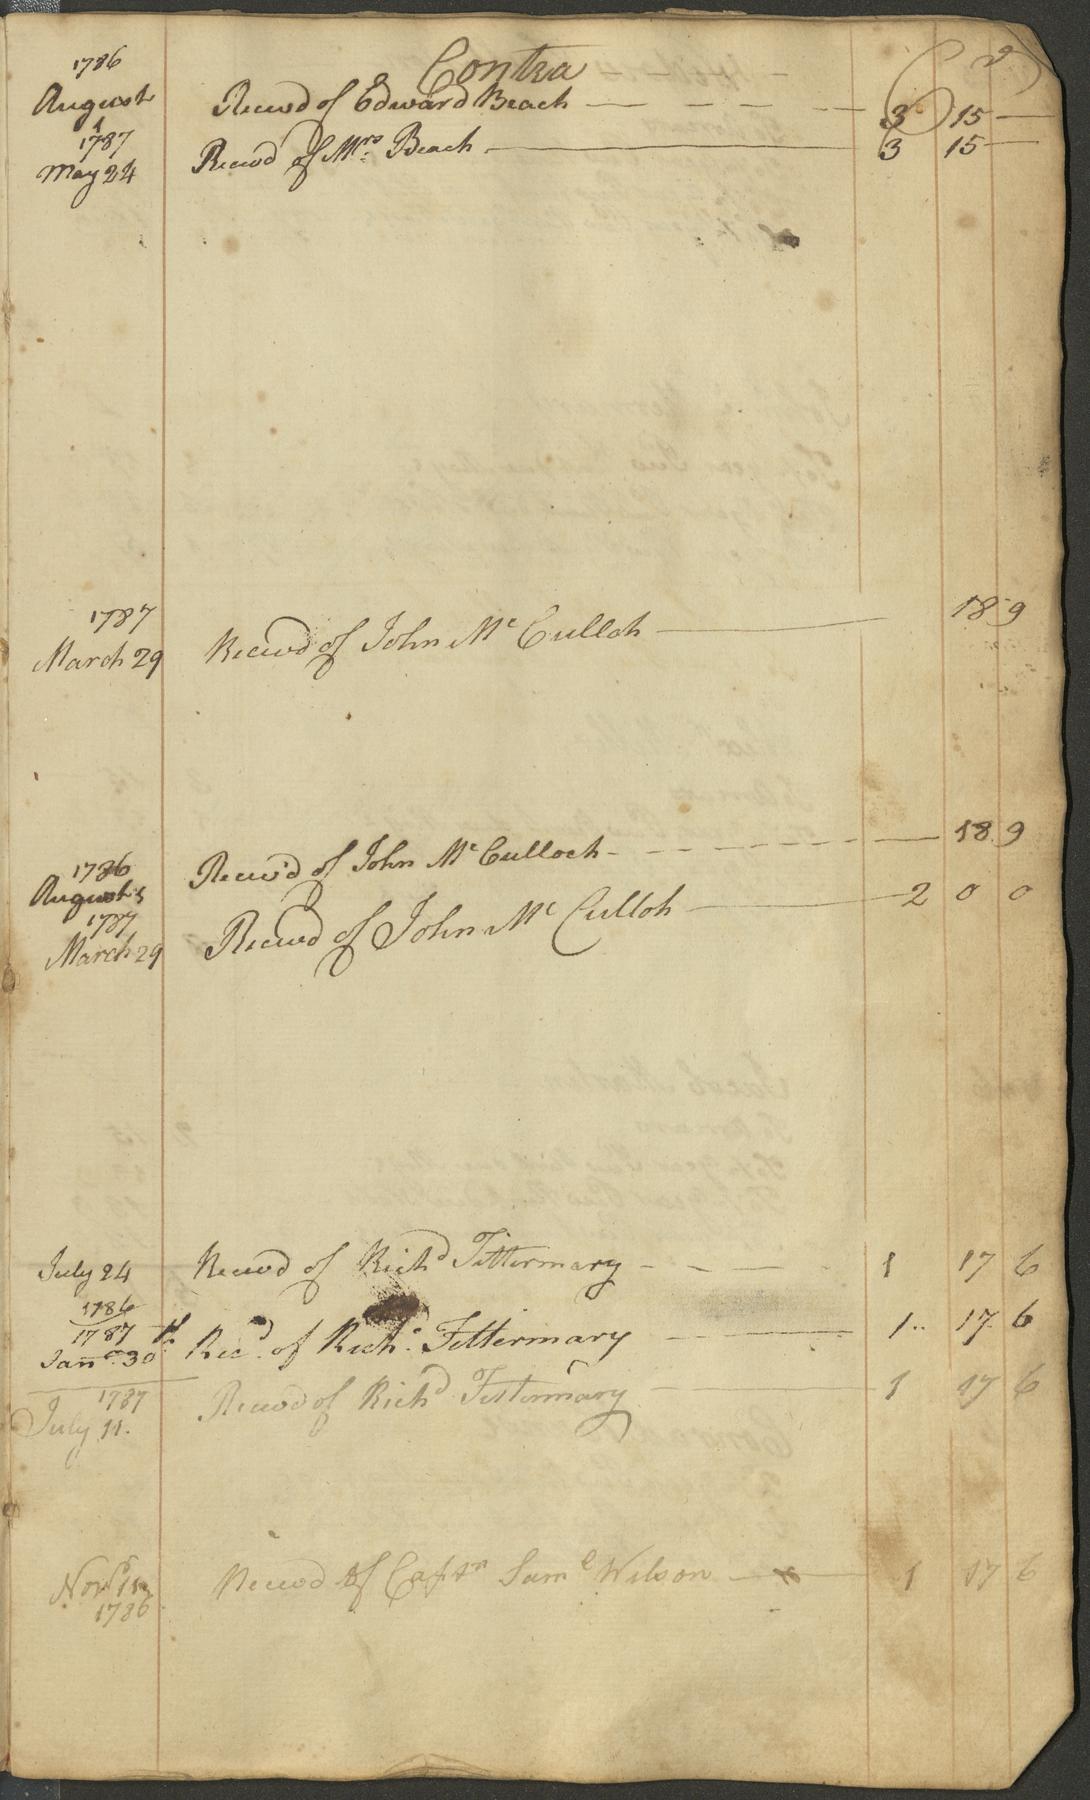 Contra Cr
1786
August 1 Recevd of Edward Beach 3 15 —
1787
May 24 Recevd of Mrs Beach 3 15 —
1787
March 29 Recevd of John Mc Culloh 18 9
1786
August 5 Recev'd of John Mc Culloch 18 9
1787
March 29 Recevd of John Mc Culloh 2 0 0
July 24 Recevd of Richd Tittermary 1 17 6
1786
1787
Jany 30th Recd. of Richd. Tittermary 1 17 6
1787
July 11. Recevd of Richd Tittermary 1 17 6
Novr 1786 Recevd of Captn Saml Wilson 1 17 6